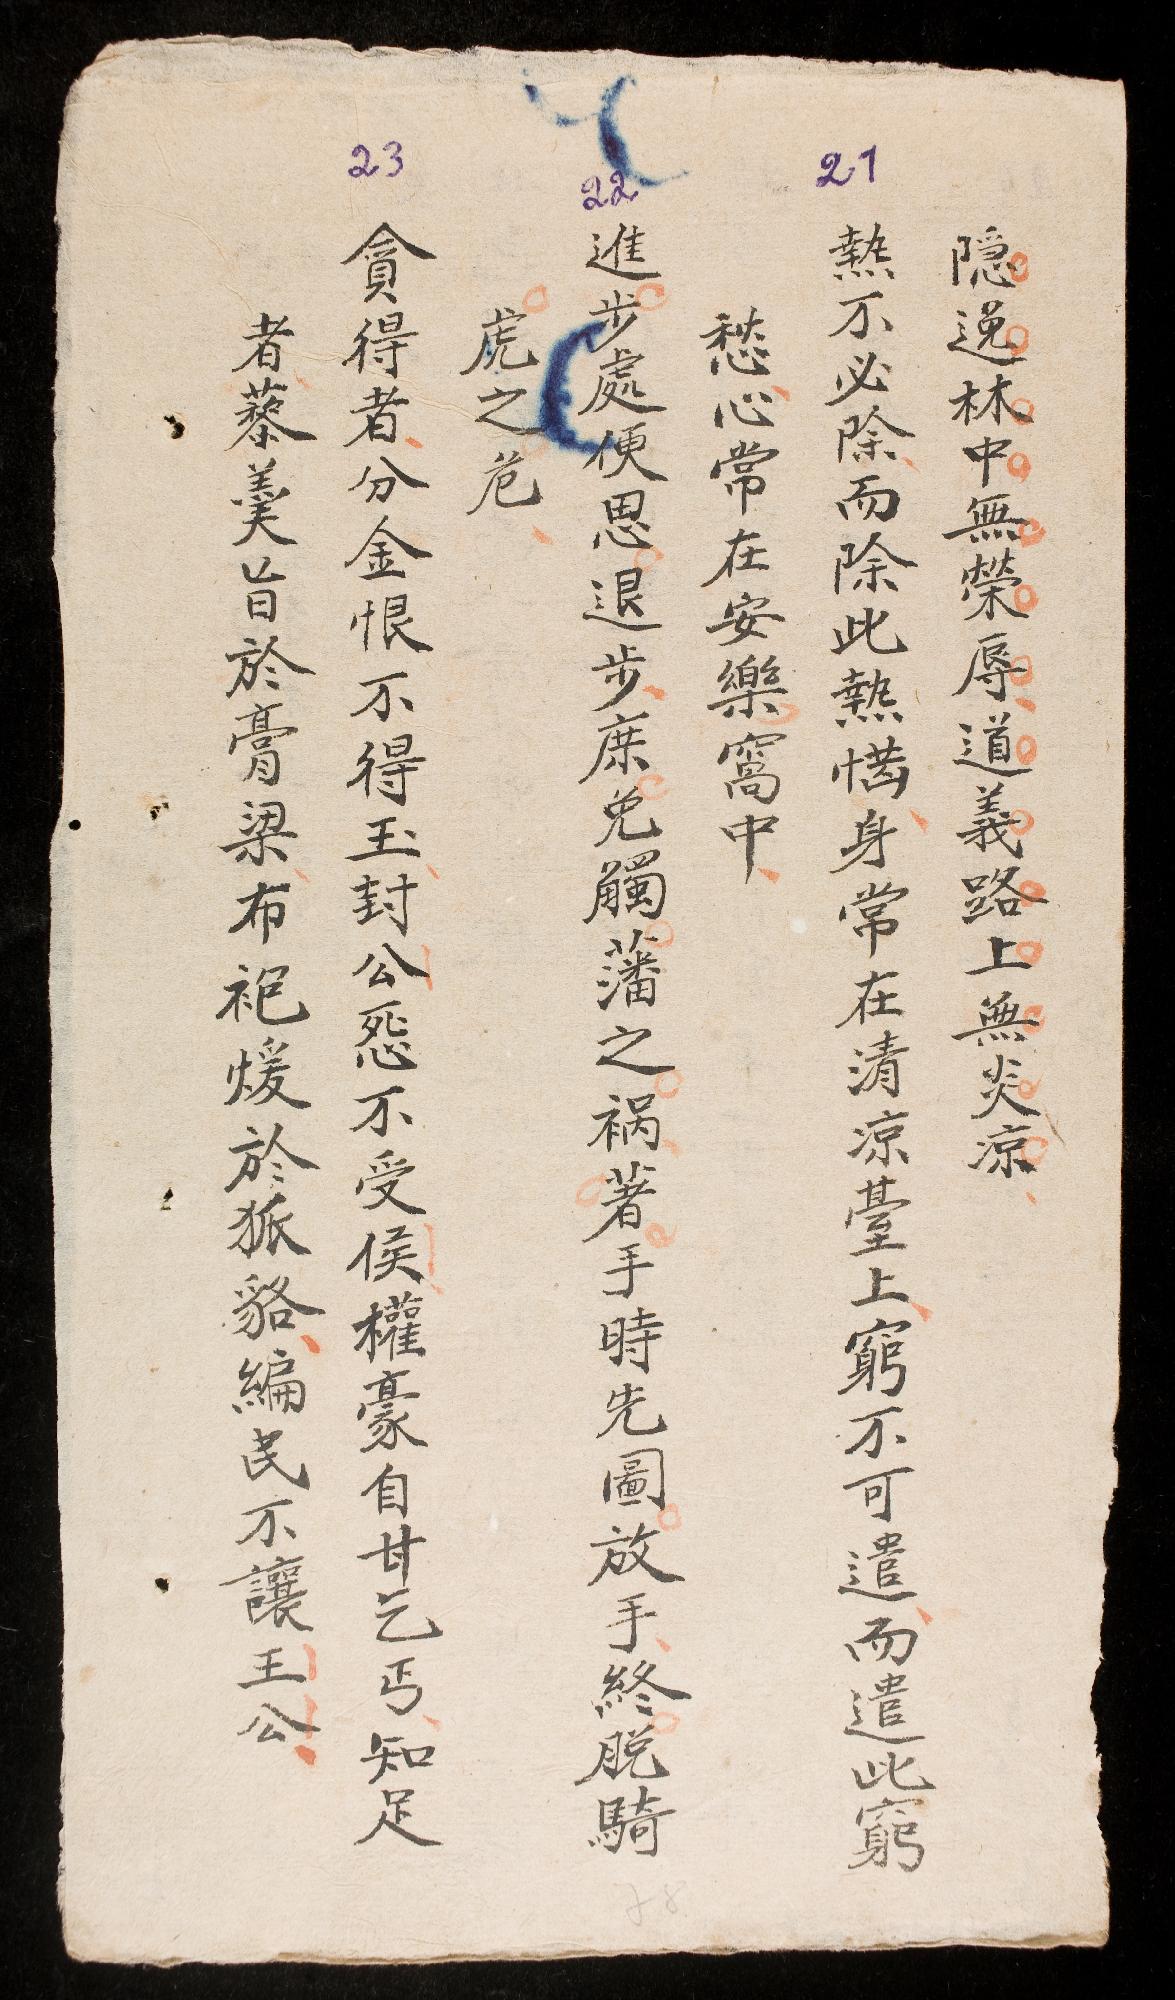 隱逸林中無榮辱道義路上無炎凉
21
熱不必除而除此熱惱身常在清凉臺上窮不可遣而遣此窮
愁心常在安樂窩中
22
進步處便思退步庶免觸藩之禍著手時先圖放手終脫騎
虎之危
23
貪得者分金恨不得玉封公怨不受侯權豪自甘乞丐知足
者藜羹旨於膏粱布袍煖於狐貉編民不讓王公
78